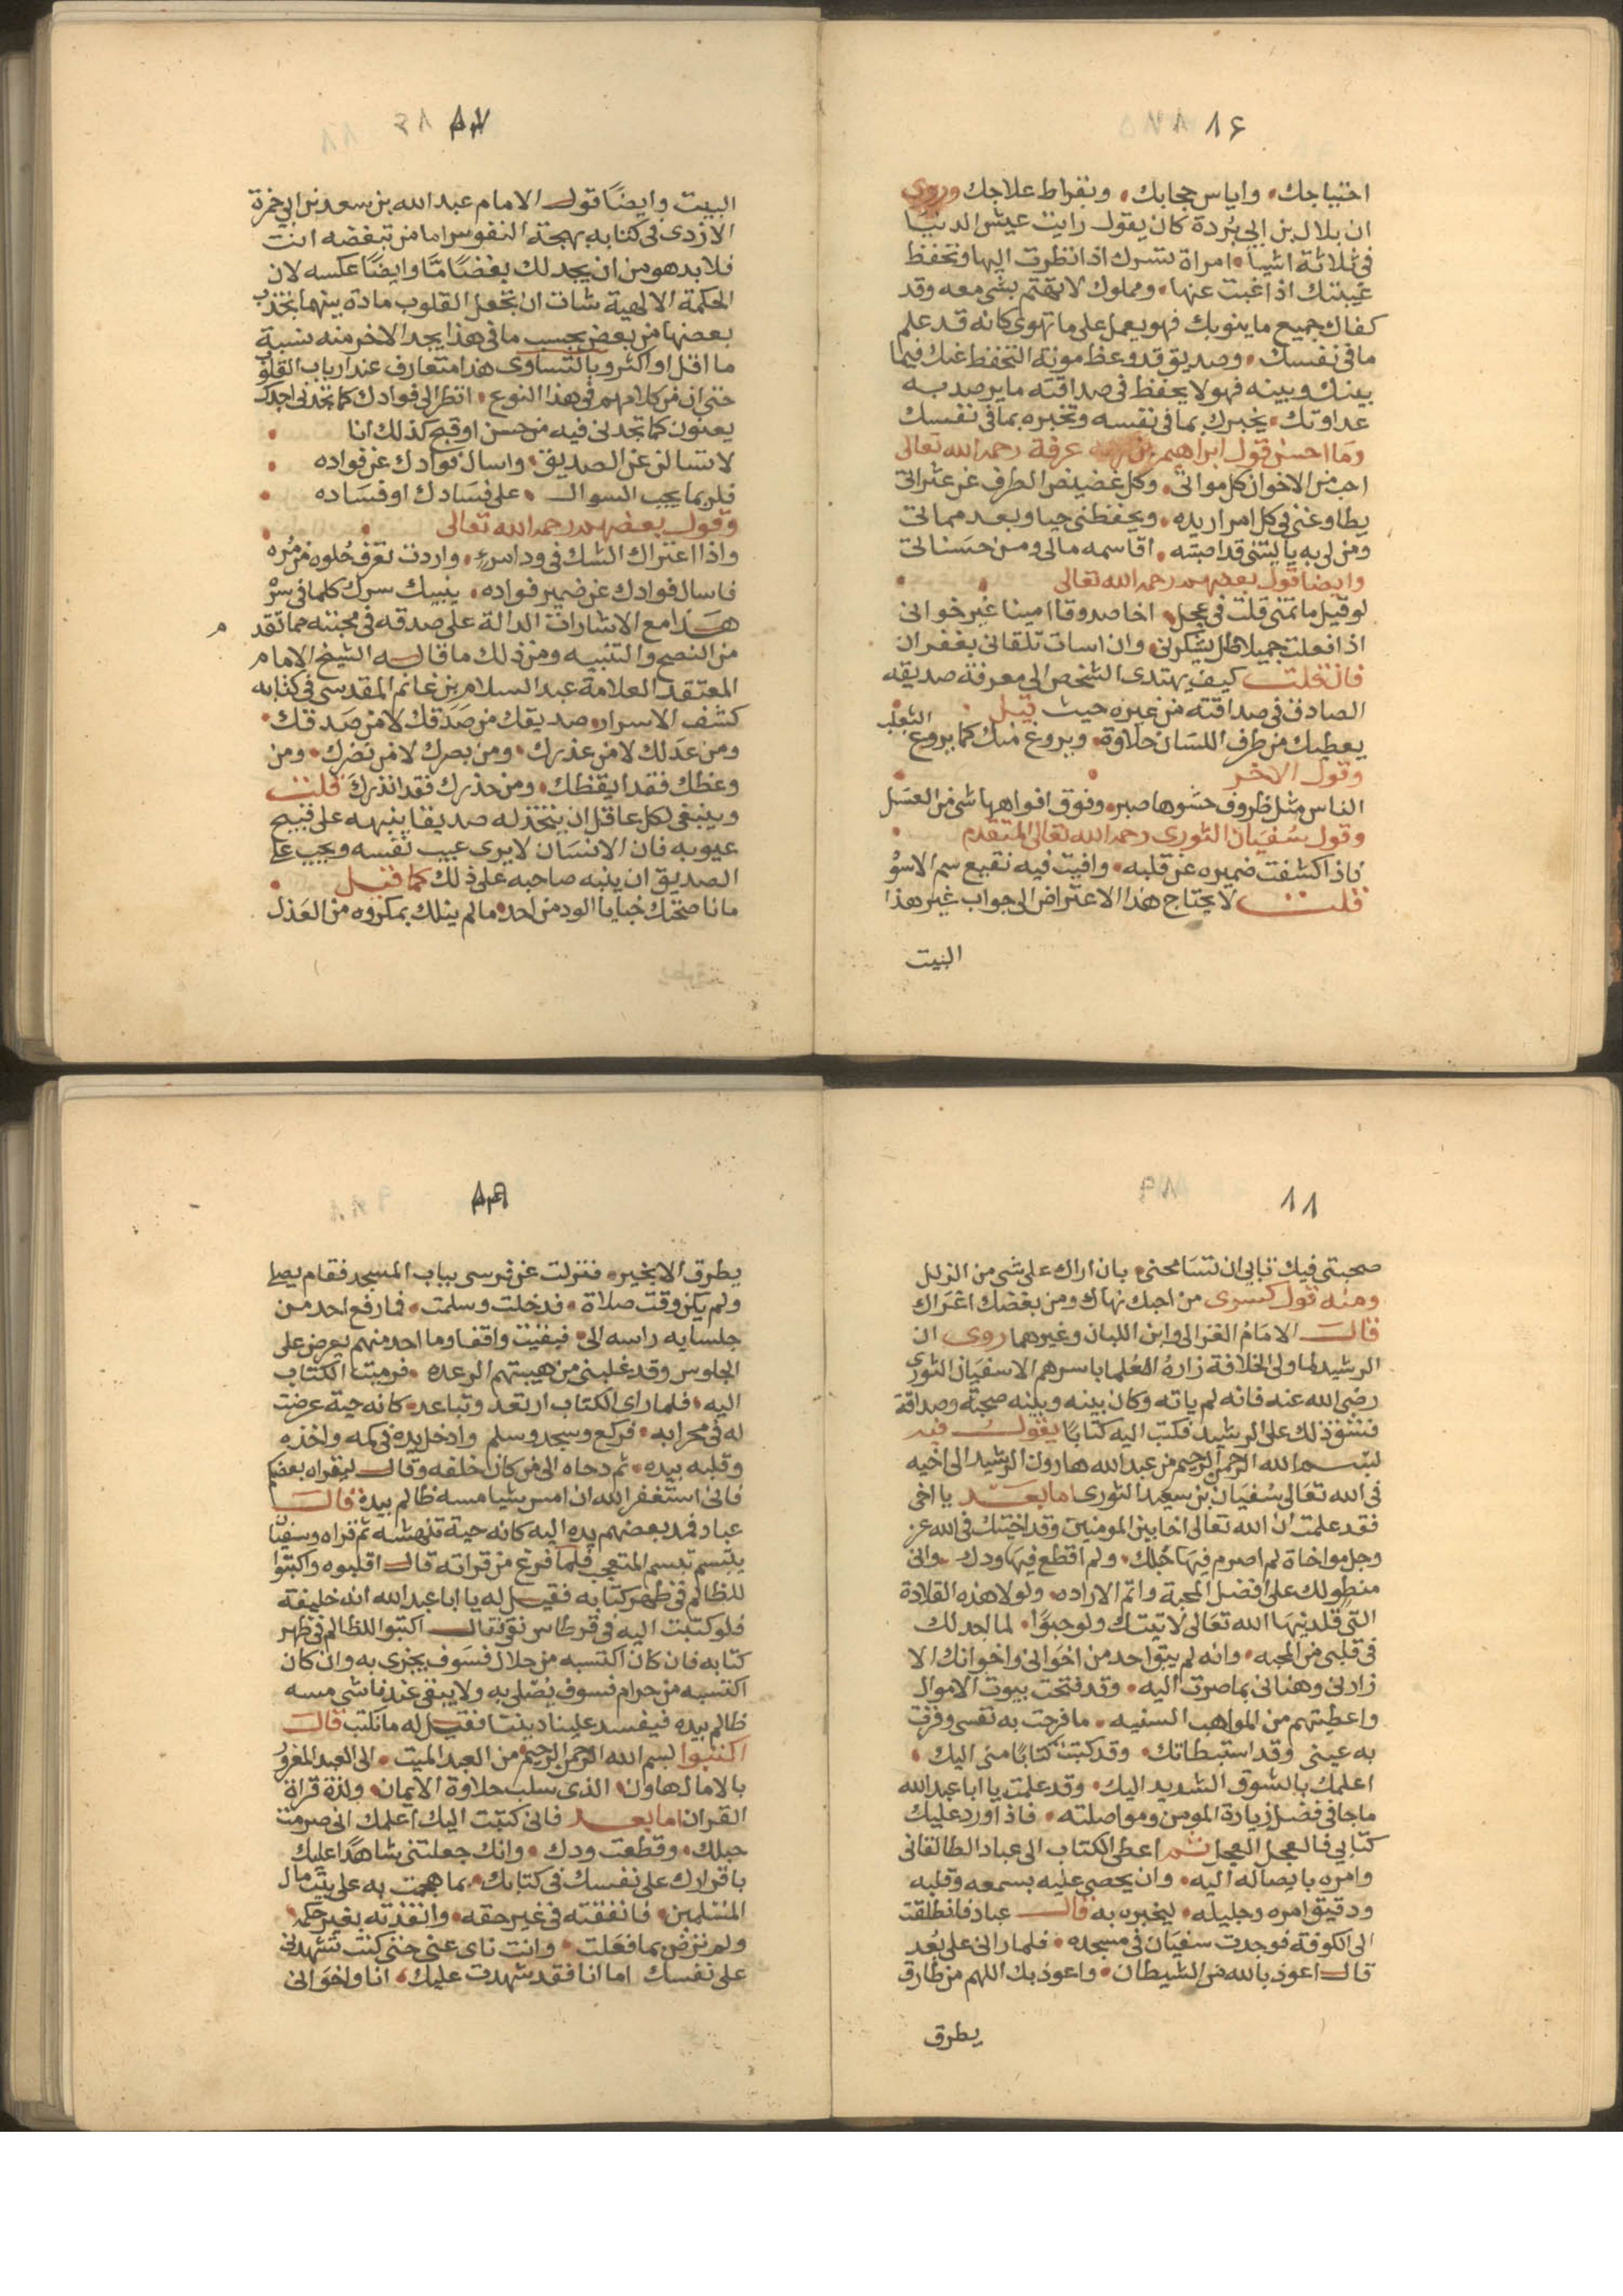 ٨٦
احتياجك واياس حجابك وبقراط علاجك وروى
ان بلال بن ابي بردة كان يقول رايت عيش الدنيا
في ثلاثة اشيا امراة تسرك اذا نظرت اليها وتحفظ
غيبتك اذا غبت عنها ومملوك لا تهتم بشي معه وقد
كفاك جميع ما ينوبك فهو يعمل على ما تهوى كانه قد علم
ما في نفسك وصديق قد وعظ مونة التحفظ عنك فيما
بينك وبينه فهو لا يحفظ في صداقته ما يرصد به
عداوتك يخبرك بما في نفسه وتخبره بما في نفسك
وما احسن قول ابراهيم بن عرفة رحمه الله تعالى
احب من الاخوان كل مواتى وكل غضيض الطرف عن عثراتى
يطاوعنى في كل امر اريده ويحفظنى حيا وبعد مماتى
ومن لى به يا ليتنى قد اصبته اقاسمه مالى ومن حسناتى
وايضا قول بعضهم رحمه الله تعالى
لو قيل ما تتمنى قلت في عجل اخا صدوقا امينا غير خوانى
اذا فعلت جميلا ظل يشكرنى وان اسات تلقانى بغفران
فان قلت كيف يهتدى الشخص الى معرفة صديقه
الصادق في صداقته من غيره حيث قيل
يعطيك من طرف اللسان حلاوة ويروغ منك كما يروغ الثعلب
وقول الاخر
الناس مثل ظروف حشوها صبر وفوق افواهها شى من العسل
وقول سفيان الثورى رحمه الله تعالى المتقدم
فاذا كشفت ضميره عن قلبه وافيت فيه نقيع سم الاسود
قلت لا يحتاج هذا الاعتراض الى جواب غير هذا
البيت
٨٧
البيت وايضا قول الامام عبد الله بن سعد بن ابي جمرة
الازدى في كتابه بهجة النفوس اما من تبغضه انت
فلا بد هو من ان يجد لك بغضا مّا وايضا عكسه لان
الحكمة الالهية شات ان تجعل القلوب مادة بينهما تجذب
بعضها من بعض بحسب ما في هذا يجد الاخر منه نسبة
ما اقل او اكثر وبالتساوى هذا متعارف عند ارباب القلوب
حتى ان من كلامهم في هذا النوع انظر الى فوادك كما تجدنى اجدك
يعنون كما تجدنى فيه من حسن او قبح كذلك انا
لا تسالن عن الصديق واسال فوادك عن فواده
فلربما يجب السوال على فسادك او فساده
وقول بعضهم رحمه الله تعالى
واذا اعتراك الشك في ود امرىء واردت تعرف حلوه من مره
فاسال فوادك عن ضمير فواده ينبيك سرك كلما في سره
هذا مع الاشارات الدالة على صدقه في محبته مما تقدم
من النصح والتنبيه ومن ذلك ما قاله الشيخ الامام
المعتقد العلامة عبد السلام بن غانم المقدسى في كتابه
كشف الاسرار صديقك من صَدَقك لا من صدّقك
ومن عدلك لا من عذرك ومن بصرك لا من نصرك ومن
وعظك فقد ايقظك ومن حذرك فقد انذرك قلت
وينبغى لكل عاقل ان يتخذ له صديقا ينبهه على قبيح
عيوبه فان الانسان لا يرى عيب نفسه ويجب على
الصديق ان ينبه صاحبه على ذلك كما قيل
ما ناصحتك خبايا الود من احد ما لم ينلك بمكروه من العذل
٨٨
صحبتى فيك تابى ان تسامحنى بان اراك على شى من الزلل
ومنه قول كسرى من احبك نهاك ومن بغضك اغراك
قال الامام الغزالى وابن اللبان وغيرهما روى ان
الرشيد لما ولى الخلافة زاره العلما باسرهم الا سفيان الثورى
رضى الله عنه فانه لم ياته وكان بينه وبينه صحبة وصداقة
فشق ذلك على الرشيد فكتب اليه كتابا يقول فيه
بسم الله الرحمن الرحيم من عبد الله هارون الرشيد الى اخيه
في الله تعالى سفيان بن سعيد الثورى اما بعد يا اخى
فقد علمت ان الله تعالى اخا بين المومنين وقد اخيتك في الله عز
وجل مواخاة لم اصرم فيها حبلك ولم اقطع فيها ودك وانى
منطو لك على افضل المحبة واتم الاراده ولولا هذه القلادة
التى قلدنيها الله تعالى لاتيتك ولو حبوا لما اجد لك
في قلبى من المحبه وانه لم يبق احد من اخوانى واخوانك الا
زارنى وهنانى بما صرت اليه وقد فتحت بيوت الاموال
واعطيتهم من المواهب السنيه ما فرحت به نفسى وقرت
به عينى وقد استبطاتك وقد كتبت كتابا منى اليك
اعلمك بالشوق الشديد اليك وقد علمت يا ابا عبد الله
ما جا في فضل زيارة المومن ومواصلته فاذا ورد عليك
كتابى فالعجل العجل ثم اعطى الكتاب الى عباد الطالقانى
وامره بايصاله اليه وان يحصى عليه بسمعه وقلبه
ودقيق امره وجليله ليخبره به قال عباد فانطلقت
الى الكوفة فوجدت سفيان في مسجده فلما رانى على بعد
قال اعوذ بالله من الشيطان واعوذ بك اللهم من طارق
يطرق
٨٩
يطرق الا بخير فنزلت عن فرسى بباب المسجد فقام يصلى
ولم يكن وقت صلاة فدخلت وسلمت فما رفع احد من
جلسايه راسه الى فبقيت واقفا وما احد منهم يعرض على
الجلوس وقد غلبنى من هيبتهم الرعده فرميت الكتاب
اليه فلما راى الكتاب ارتعد وتباعد كانه حية عرضت
له في محرابه فركع وسجد وسلم وادخل يده في كمه واخذه
وقلبه بيده ثم دحاه الى من كان خلفه وقال ليقراه بعضكم
فانى استغفر الله ان امس شيا مسه ظالم بيده قال
عباد فمد بعضهم يده اليه كانه حية تنهشه ثم قراه وسفيان
يتبسم تبسم المتعجب فلما فرغ من قراته قال اقلبوه واكتبوا
للظالم في ظهر كتابه فقيل له يا ابا عبد الله انه خليفة
فلو كتبت اليه في قرطاس نقى فقال اكتبوا للظالم في ظهر
كتابه فان كان اكتسبه من حلال فسوف يجزى به وان كان
اكتسبه من حرام فسوف يصلى به ولا يبقى عندنا شى مسه
ظالم بيده فيفسد علينا ديننا فقيل له ما نكتب قال
اكتبوا بسم الله الرحمن الرحيم من العبد الميت الى العبد المغرور
بالامال هاون الذى سلب حلاوة الايمان ولذة قراة
القران اما بعد فانى كتبت اليك اعلمك انى صرمت
حبلك وقطعت ودك وانك جعلتنى شاهدا عليك
باقرارك على نفسك في كتابك بما هجمت به على بيت مال
المسلمين فانفقته في غير حقه وانفذته بغير حكمه
ولم ترض بما فعلت وانت ناى عنى حتى كنت تشهدنى
على نفسك اما انا فقد شهدت عليك انا واخوانى